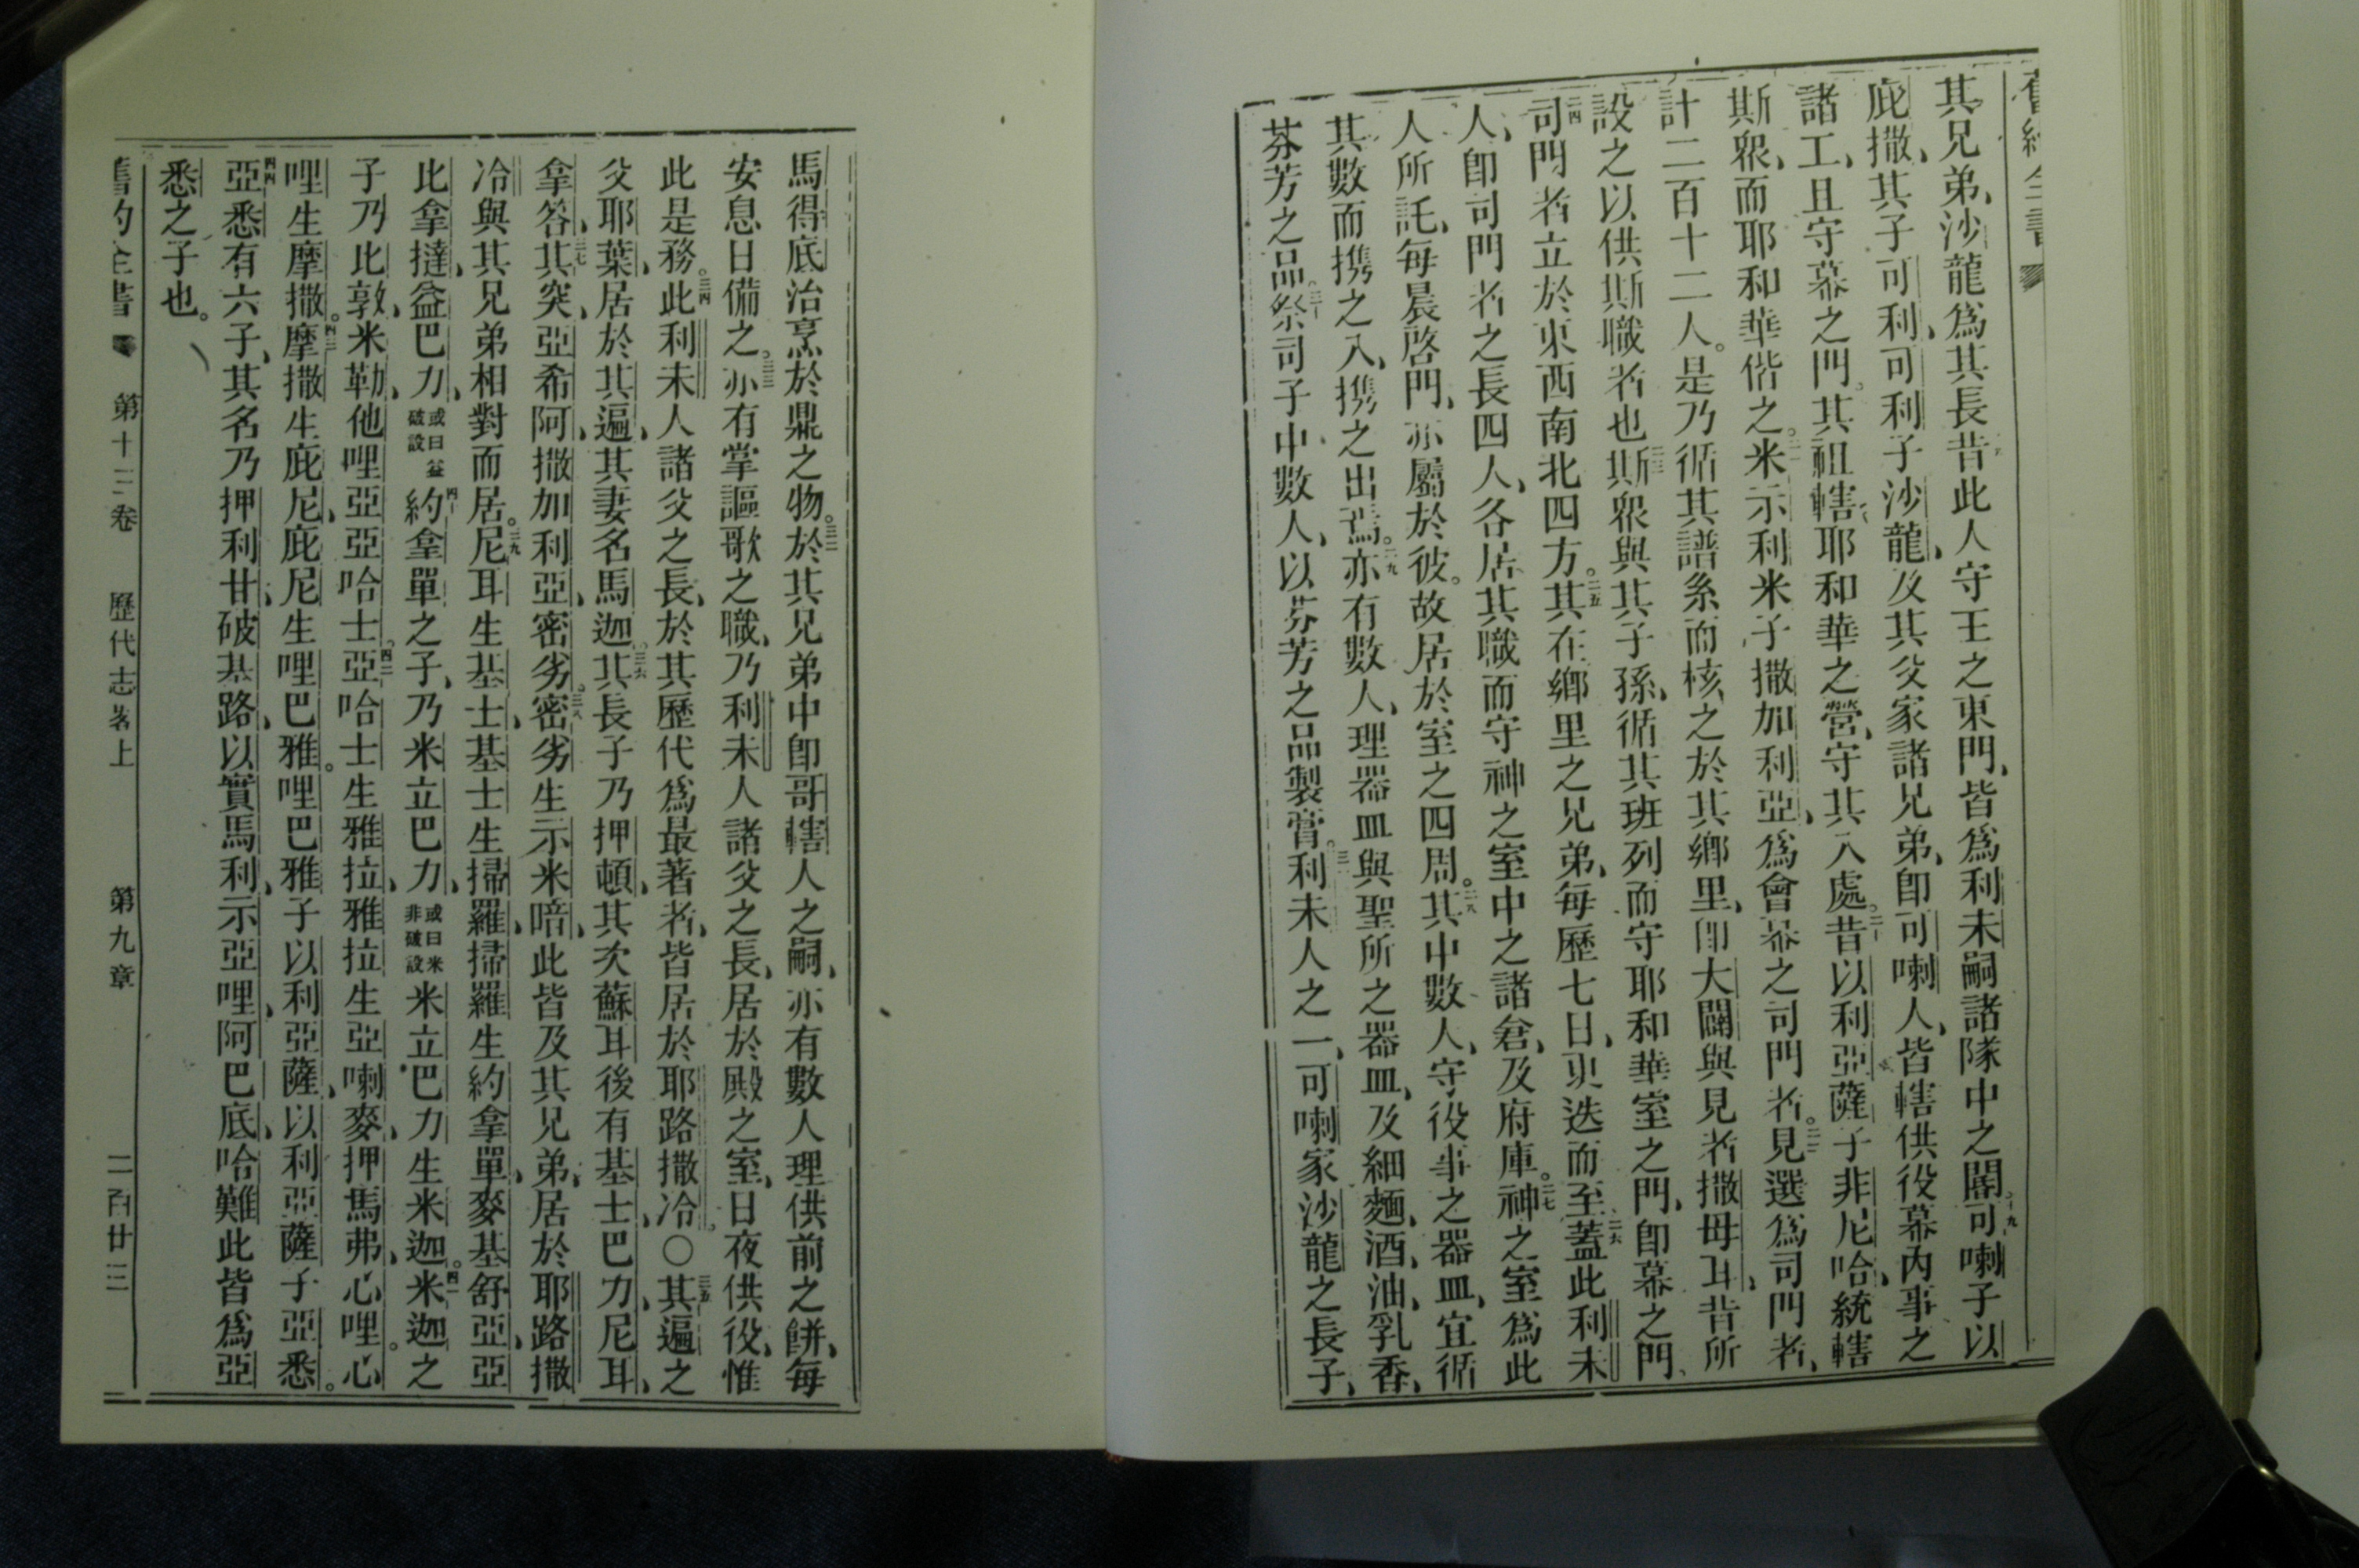 其兄弟、沙龍爲其長昔此人守王之東門、皆爲利未嗣諸隊中之閽可喇子以
庇撒、其子可利、可利子沙龍、及其父家諸兄弟、卽可喇人、皆轄供役幕內事之
諸工、且守幕之門。其祖轄耶和華之營、守其入處。昔以利亞薩子非尼哈、統轄
斯衆、而耶和華偕之。米示利米子撒加利亞、爲會幕之司門者。見選爲司門者、
計二百十二人。是乃循其譜系而核之於其鄉里、卽大闢與見者撒母耳昔所
設之以供斯職者也斯衆與其子孫、循其班列而守耶和華室之門、卽幕之門、
司門者立於東西南北四方。其在鄉里之兄弟、每歷七日、更迭而至蓋此利未
人、卽司門者之長四人、各居其職而守神之室中之諸倉、及府庫。神之室爲此
人所託、每晨啓門、亦屬於彼。故居於室之四周。其中數人、守役事之器皿、宜循
其數而攜之入、攜之出焉。亦有數人、理器皿與聖所之器皿、及細麵、酒、油、乳香、
芬芳之品。祭司子中數人、以芬芳之品製膏。利未人之一、可喇家沙龍之長子、
馬得底治烹於鼎之物。於其兄弟中卽哥轄人之嗣、亦有數人理供前之餅、每
安息日備之。亦有掌謳歌之職、乃利未人諸父之長、居於殿之室、日夜供役、惟
此是務。此利未人諸父之長、於其歷代爲最著者、皆居於耶路撒冷。〇其遍之
父耶葉、居於其遍、其妻名馬迦。其長子乃押頓、其次蘇耳後有基士、巴力、尼耳、
拿答、其突、亞希阿、撒加利亞、密劣。密劣生示米暗、此皆及其兄弟、居於耶路撒
冷與其兄弟相對而居。尼耳生基士、基士生掃羅、掃羅生約拿單、麥基舒亞、亞
比拿撻、益巴力、或曰益破設約拿單之子、乃米立巴力、或曰米非破設米立巴力生米迦。米迦之
子乃比敦、米勒、他哩亞亞哈士。亞哈士生雅拉、雅拉生亞喇麥、押馬弗、心哩。心
哩生摩撒。摩撒生庇尼、庇尼生哩巴雅。哩巴雅子以利亞薩、以利亞薩子亞悉。
亞悉有六子、其名乃押利甘、破基路、以實馬利、示亞哩、阿巴底、哈難此皆爲亞
悉之子也。
第十三卷 歷代志畧上 第九章 二百廿三